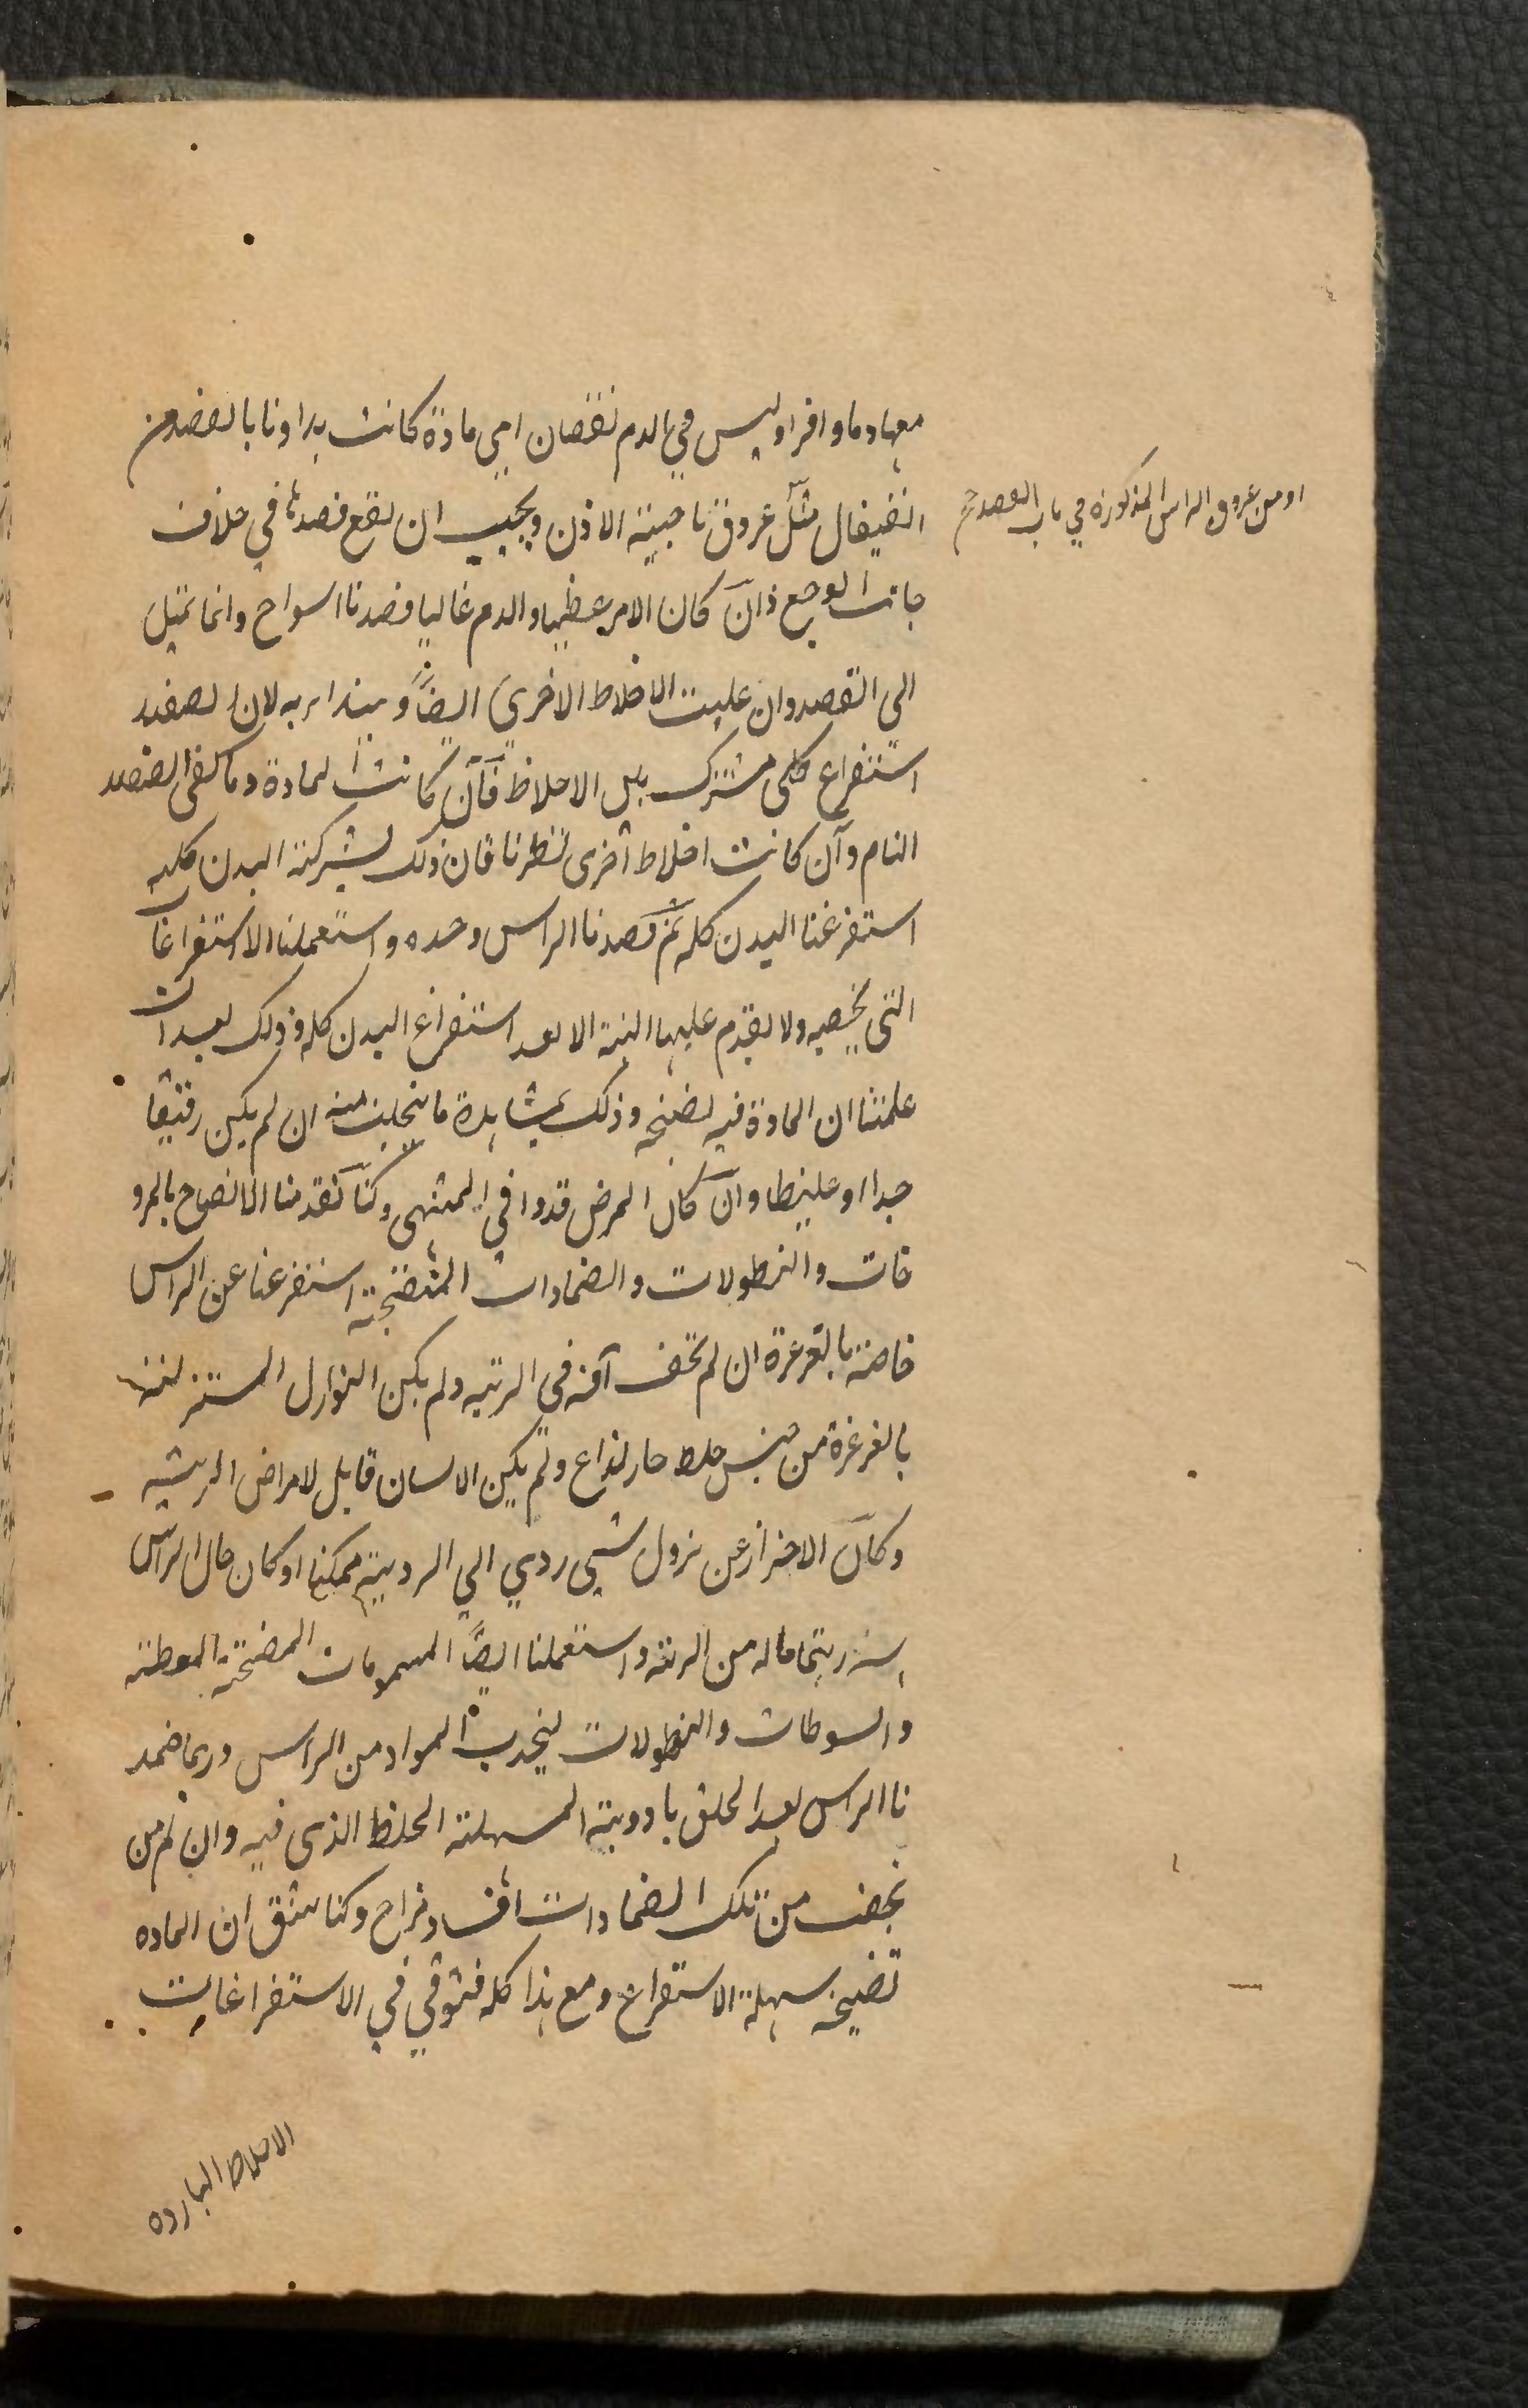 معها دما وافرا وليس في الدم نقصان اي مادة كانت بداونا بالفصد من
القيفال مثل عروق ناحية الاذن ويجب ان يقع فصدها في خلاف
جانب الوجع فان كان الامر عظيما والدم غالبا فصدنا اسواح وانما نميل
الي الفصد وان غلبت الاخلاط الاخري ايضاً ويبدا به لان الفصد
استفراع كلي مشترك بين الاخلاط فان كانت المادة دما كفي الفصد
التام وان كانت اخلاط اخري نظرنا فان ذلك لشركة البدن كله
استفرغنا البدن كله ثم قصدنا الراس وحده واستعملنا الاستفراغات
التي يخصه ولا يقدم عليها البتة الا بعد استفراغ البدن كله وذلك بعد ان
علمنا ان المادة فيه نضيجة وذلك بمشاهدة ما ينحلب منه ان لم يكن رقيقا
جدا او غليظا وان كان المرض قد وافي المنتهي وكنا تقدمنا الانضاح بالمرو
خات والنطولات والضمادات المنضجة استفرغنا عن الراس
خاصة بالغرغرة ان لم تخف آفة في الريه ولم يكن النوازل المستنزلة
بالغرغرة من جنس خلط حار لذاع ولم يكن الانسان قابل لامراض الريشه
وكان الاحتراز عن نزول شيي ردي الي الرويية ممكنا او كان حال الراس
اشد اهتماما له من الريه واستعملنا ايضاً المشمومات المفتحة المعطسة
والسوطات والنطولات لينجذب المواد من الراس وربما ضمد
نا الراس بعد الحلق بادوية المسهلة الخلط الذي فيه وان لم
نخف من تلك الضمادات افساد مزاج وكنا نثق ان الماده
نضيجة سهلة الاستفراع ومع هذا كله فنتوقي في الاستفراغات
الاخلاط البارده
او من عروق الراس المذكورة في باب الفصد صح